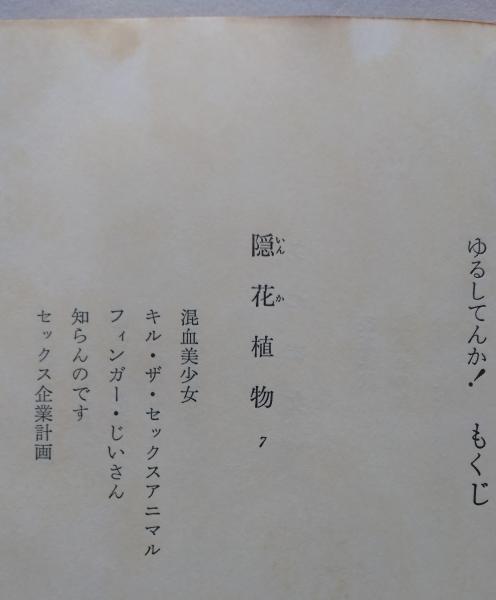 ゆるしてんか！ もくじ
隠花植物 7
いんか
混血美少女
キル・ザ・セックスアニマル
フィンガー・じいさん
知らんのです
セックス企業計画